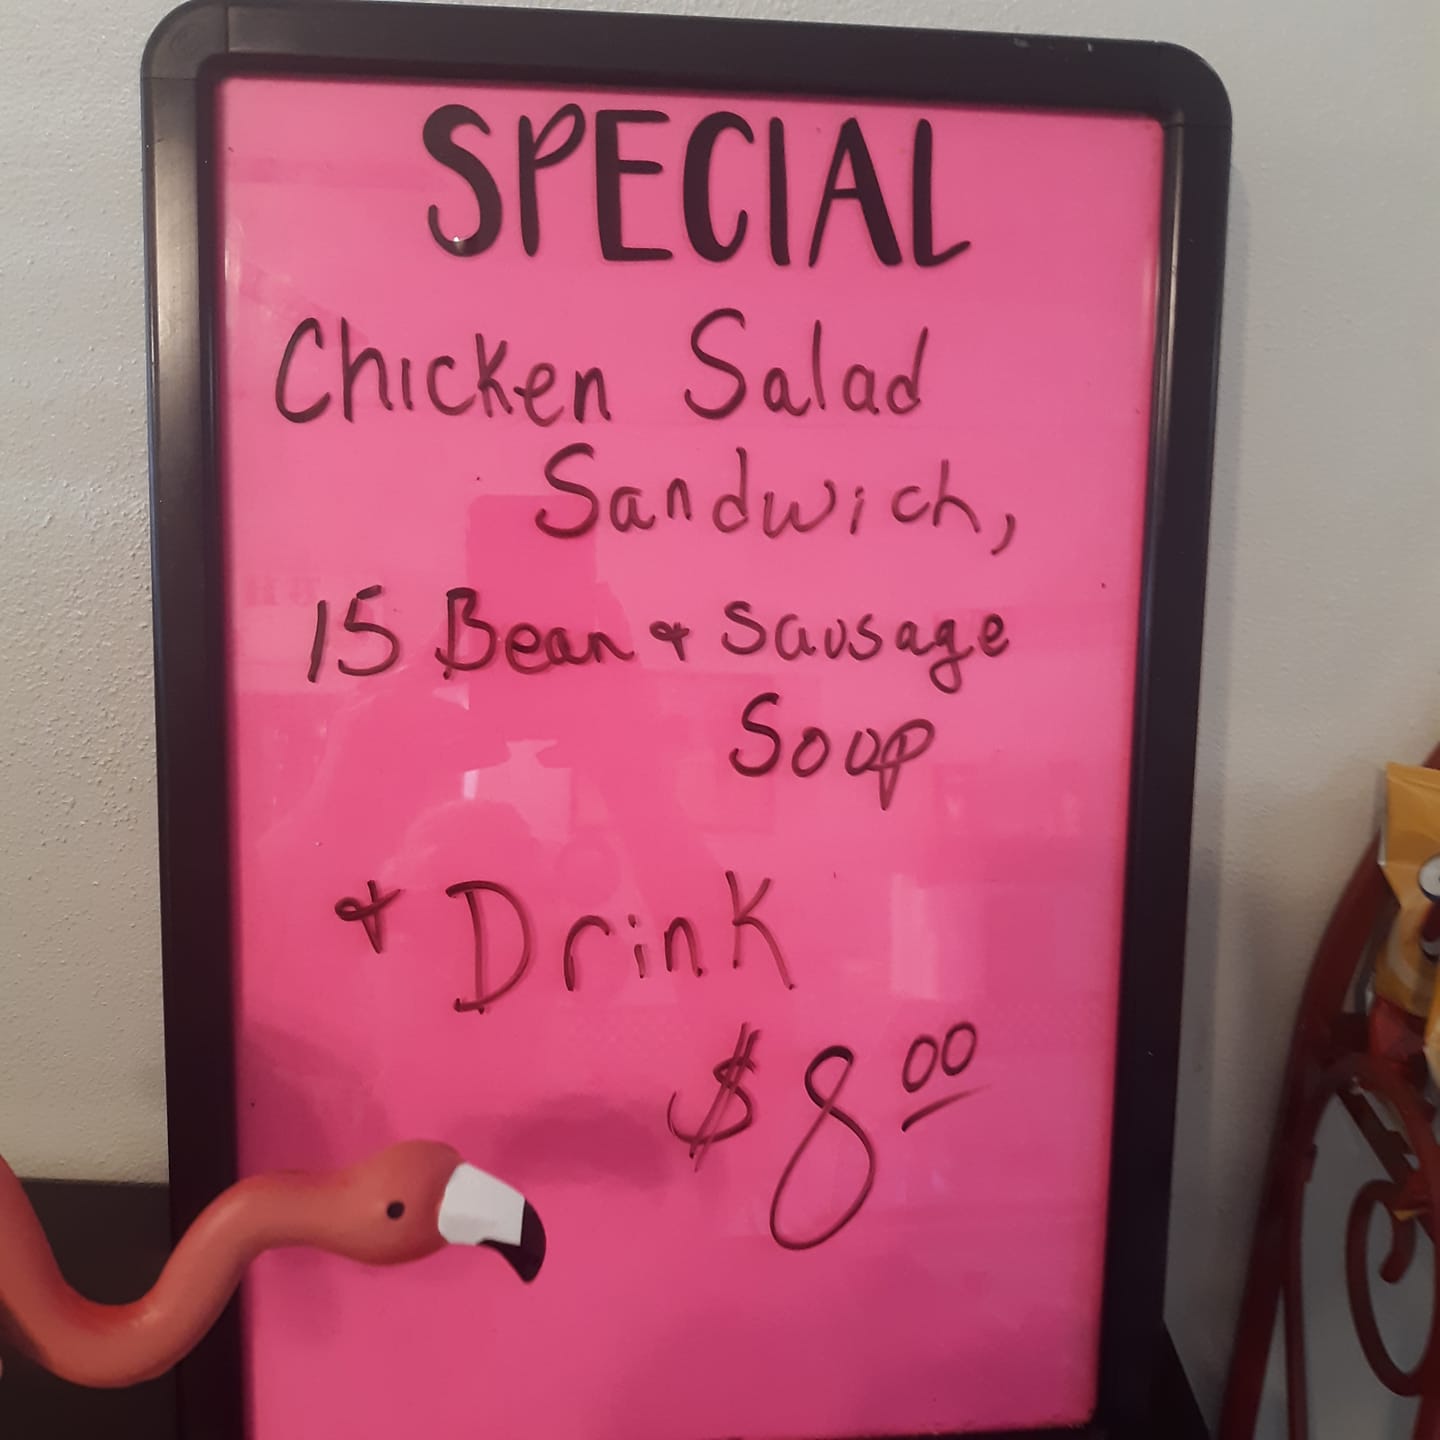 SPECIAL
Chicken Salad
Sandwich,
15 Bean & Sausage
Soup
& Drink
$8.00